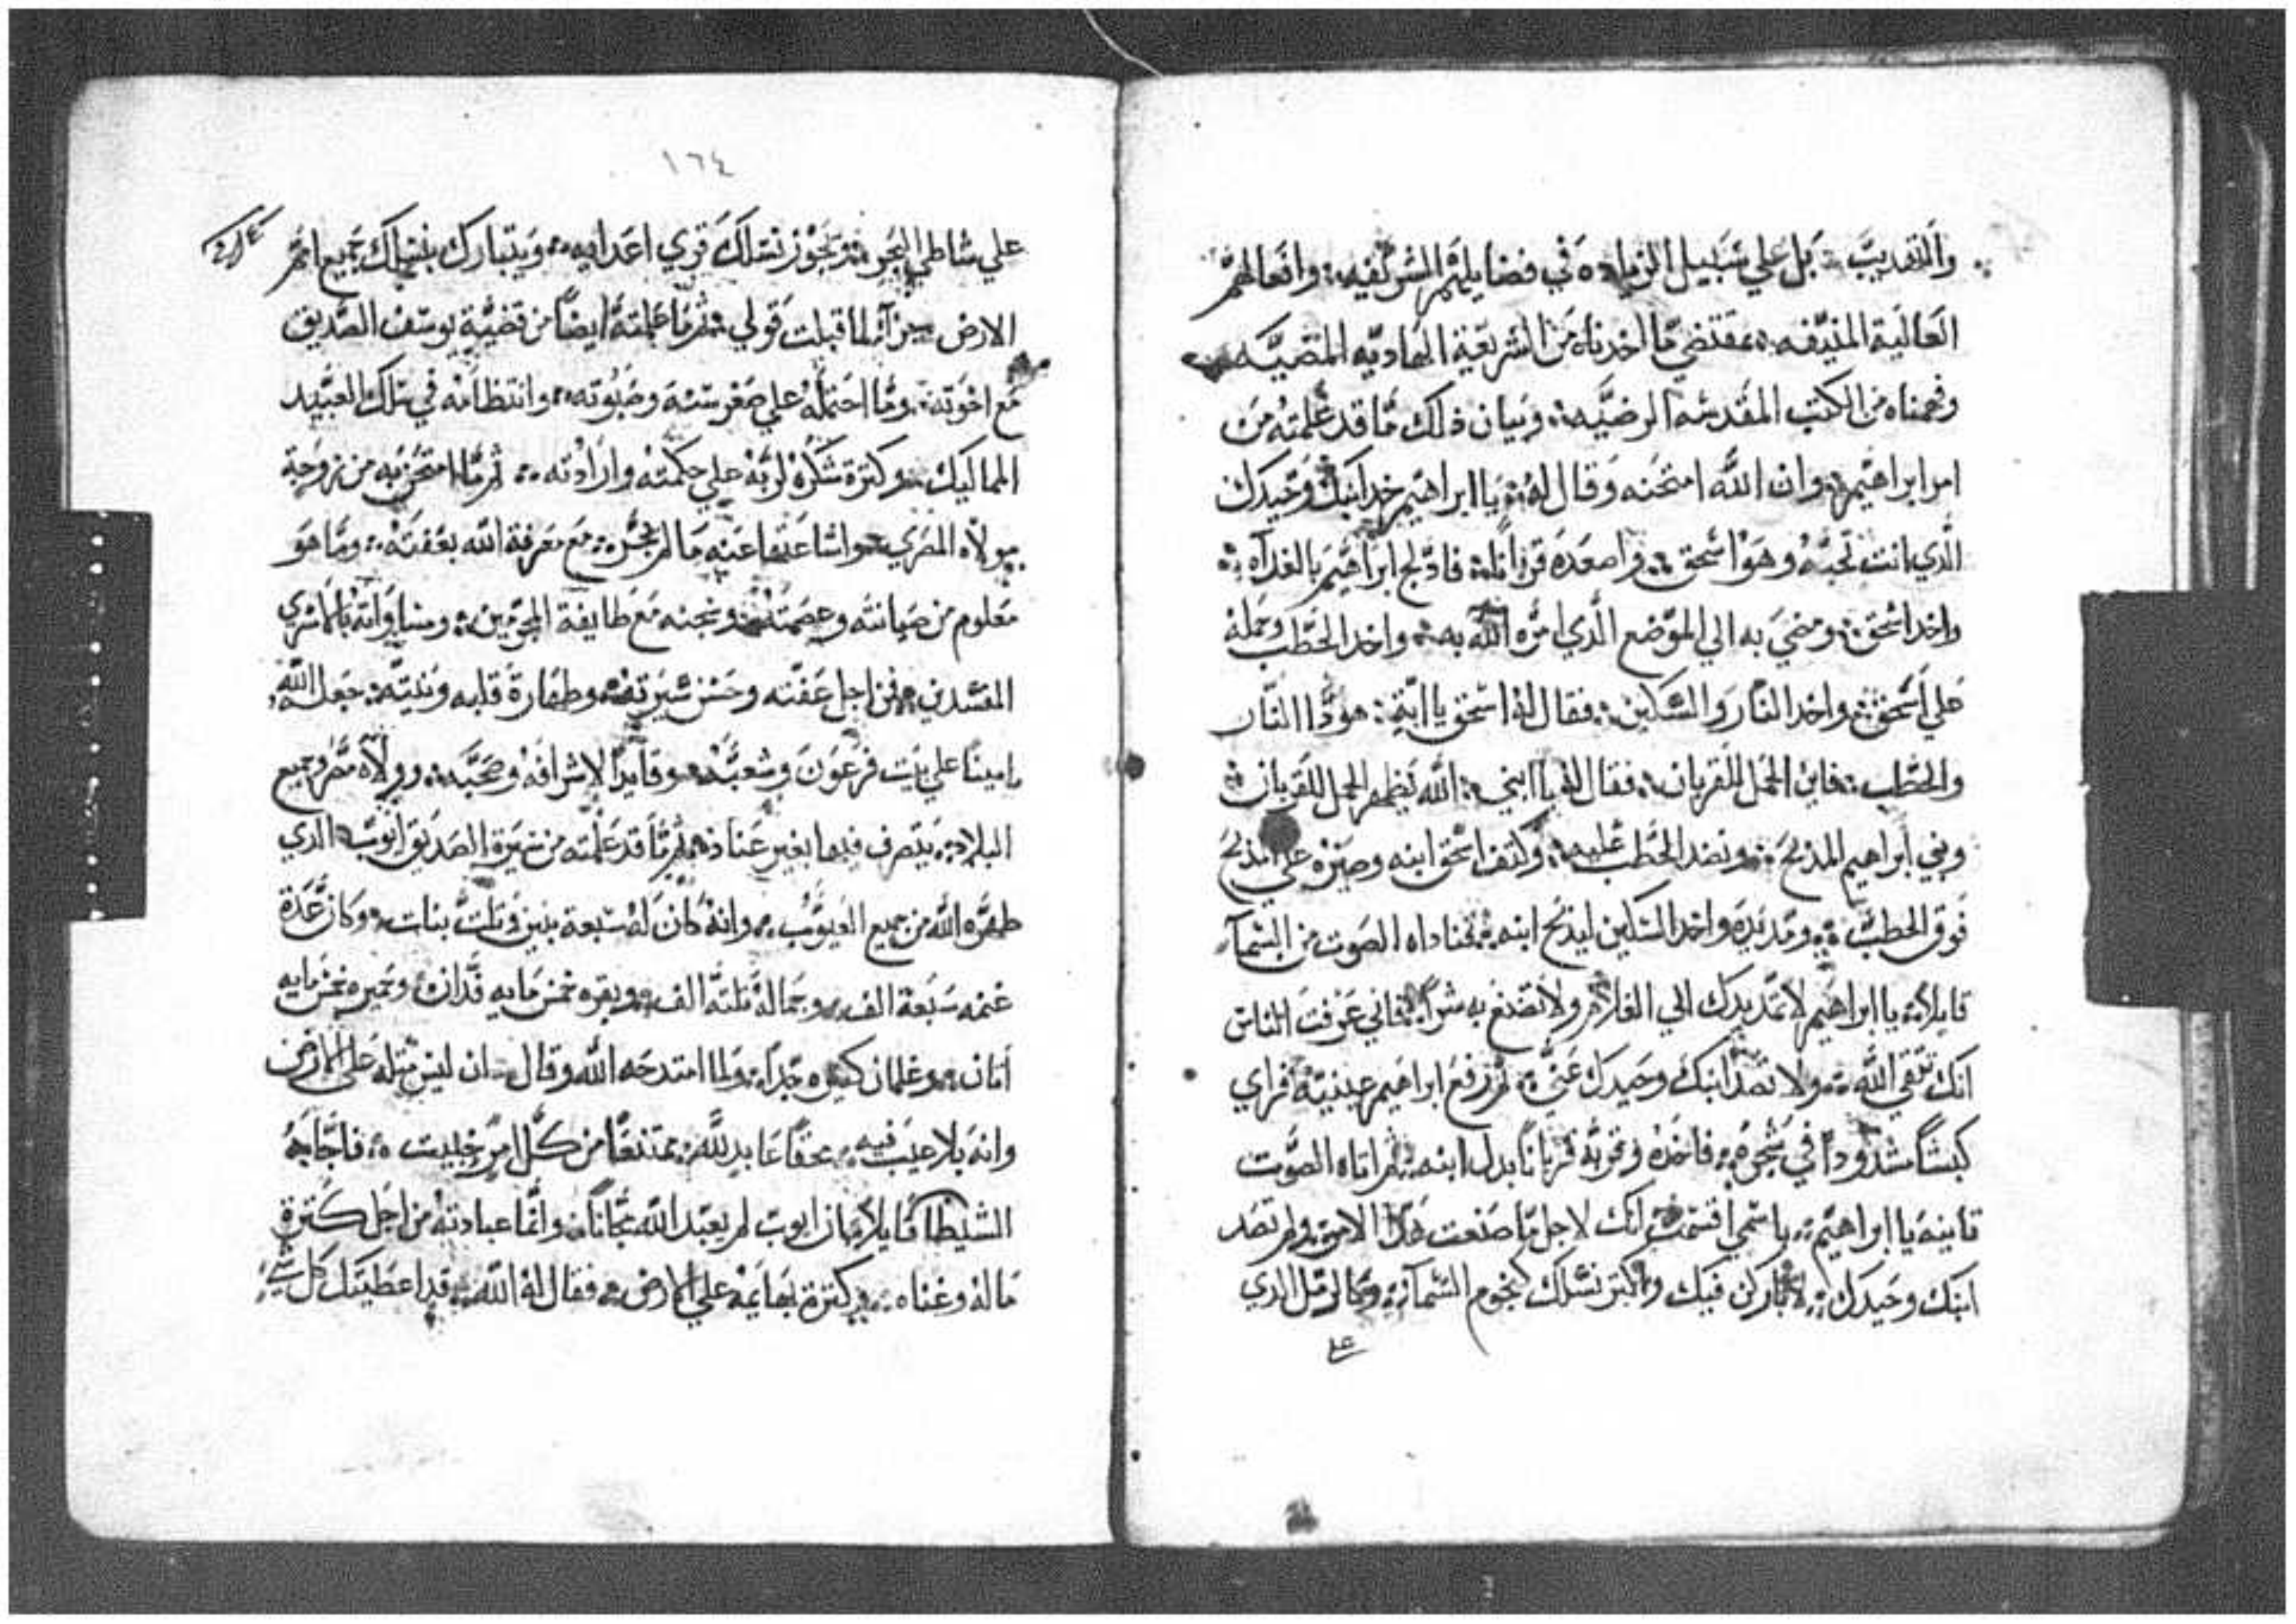 والتقديب بل علي سبيل الزياده في فضايلهم الشريفه وافعالهم
العالية المنيفه بمقتضي ما اخدناه من الشريعة الهاديه المقضيه
وفهمناه من الكتب المقدسه الرضيه وبيان ذلك ما قد علمته من
امر ابراهيم وان الله امتحنه وقال له يا ابراهيم خد ابنك وحيدك
الذي انت تحبه وهو اسحق واصعده قربانا فادلج ابراهيم بالغداه
واخد اسحق ومضي به الي الموضع الذي امره الله به واخد الحطب وحمله
علي اسحق واخد النار والسكين فقال له اسحق يا ابتي هودا النار
والحطب فاين الحمل للقربان فقال له يا ابني الله يظهر الحمل للقربان
وبني ابراهيم المدبح ونضد الحطب عليه وكتف اسحق ابنه وصيره علي المدبح
فوق الحطب ومد يده واخد السكين ليدبح ابنه فناداه الصوت من السمآ
قايلا يا ابراهيم لا تمد يدك الي الغلام ولا تصنع به شرا فاني عرفت الناس
انك تتقي الله ولا تصد ابنك وحيدك عني ثم رفع ابراهيم عينيه فراي
كبشا مشدودا في شجره فاخده وقربه قربانا بدل ابنه ثم اتاه الصوت
تاينه يا ابراهيم باسمي اقسمت انك لاجل ما صنعت هدا الامر ولم تصد
ابنك وحيدك لاباركن فيك واكتر نسلك كنجوم السمآ وكالرمل الدي
علي
١٦٤
علي شاطي البحر وتجوز نسلك قري اعدايه ويتبارك بنسلك جميع امم
الارض جزآ لما قبلت قولي ثم ما علمته ايضا من قضية يوسف الصديق
مع اخوته وما احتمله علي صغر سنه وصبوته وانتظامه في سلك العبيد
المماليك وكترة شكره لربه علي حكمته وارادته ثم ما امتحن به من زوجة
مولاه المصري واشاعتها عنه ما لم يجر مع معرفة الله بعفته وما هو
معلوم من صيانته وعصمته وسجنه مع طايفة المجرمين ومساواته بالاشري
المفسدين فمن اجل عفته وحسن سيرته وطهارة قلبه ونيته جعله الله
امينا علي بيت فرعون وشعبه وقايدا لاشرافه وصحبه وولاه مصر وجميع
البلاد يتصرف فيها بغير عناد ثم ما قد علمته من سيرة الصديق ايوب الدي
طهره الله من جميع العيوب وانه كان له سبعة بنين وتلت بنات وكان عدة
غنمه سبعة الف وجماله تلتة الف وبقره خمس مايه فدان وحميره خمس مايه
اتان وغلمان كتيره جدا ولما امتدحه الله وقال ان ليس متله علي الارض
وانه بلا عيب فيه محقا عابد لله ممتنعا من كل امر خبيت فاجابه
الشيطان قايلا ان ايوب لم يعبد الله مجانا وانما عبادته من اجل كترة
ماله وغناه وكترة بهايمه علي الارض فقال له الله قد اعطيتك كل شي